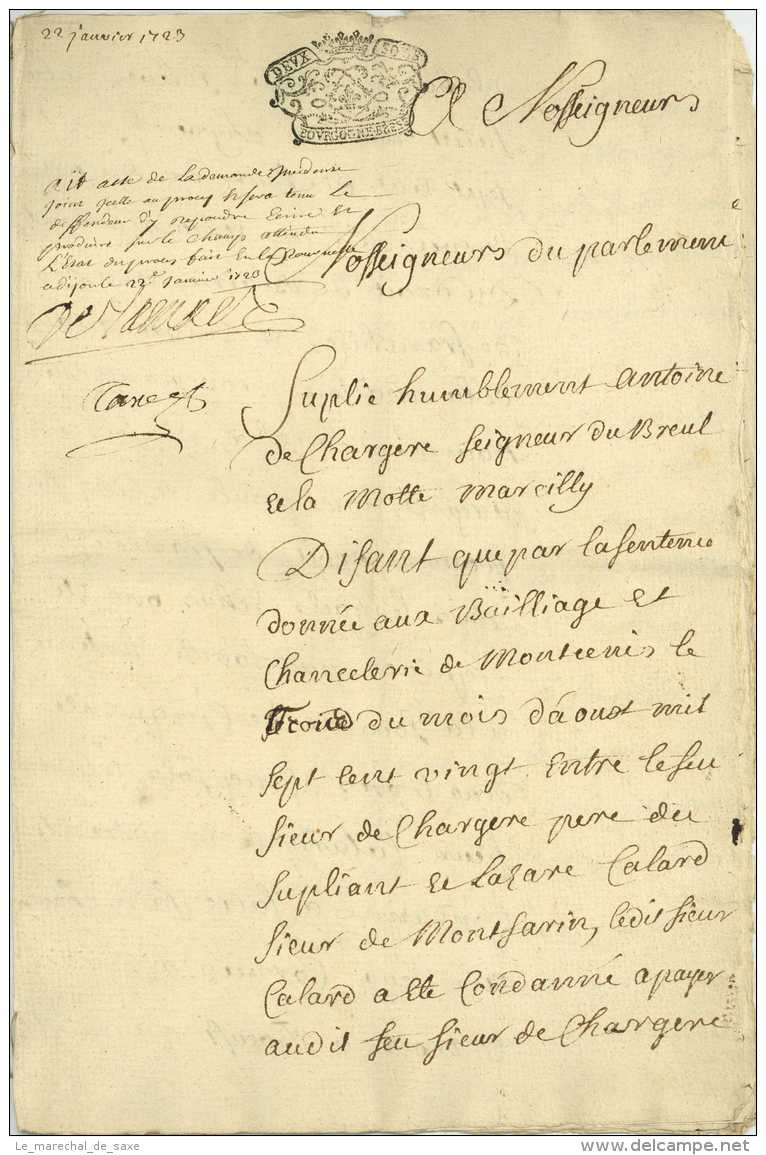 22 janvier 1723
DEVX SOLS
BOVRGOGNE BRES
A Nosseigneurs
Nosseigneurs du parlement
ait acte de la demande
joint icelle au proces et sera tenu le
deffendeur d'y repondre Ecrire et
produire sur le champ attendu
L'Etat du proces fait En la
a dijon le 22e Janvier 1723
Taxe
Suplie humblement Antoine
de Chargere seigneur du Breul
et la Motte Marcilly
Disant que par la sentence
donnée aux Bailliage et
Chancelerie de Montcenis le
Trois du mois d'áoust mil
sept Cent vingt Entre le feu
sieur de Chargere pere du
supliant et Lazare Calard
sieur de Montsarin, ledit sieur
Calard a Eté Condanné a payer
audit feu sieur de Chargere
Le_marechal_de_saxe
www.delcampe.net